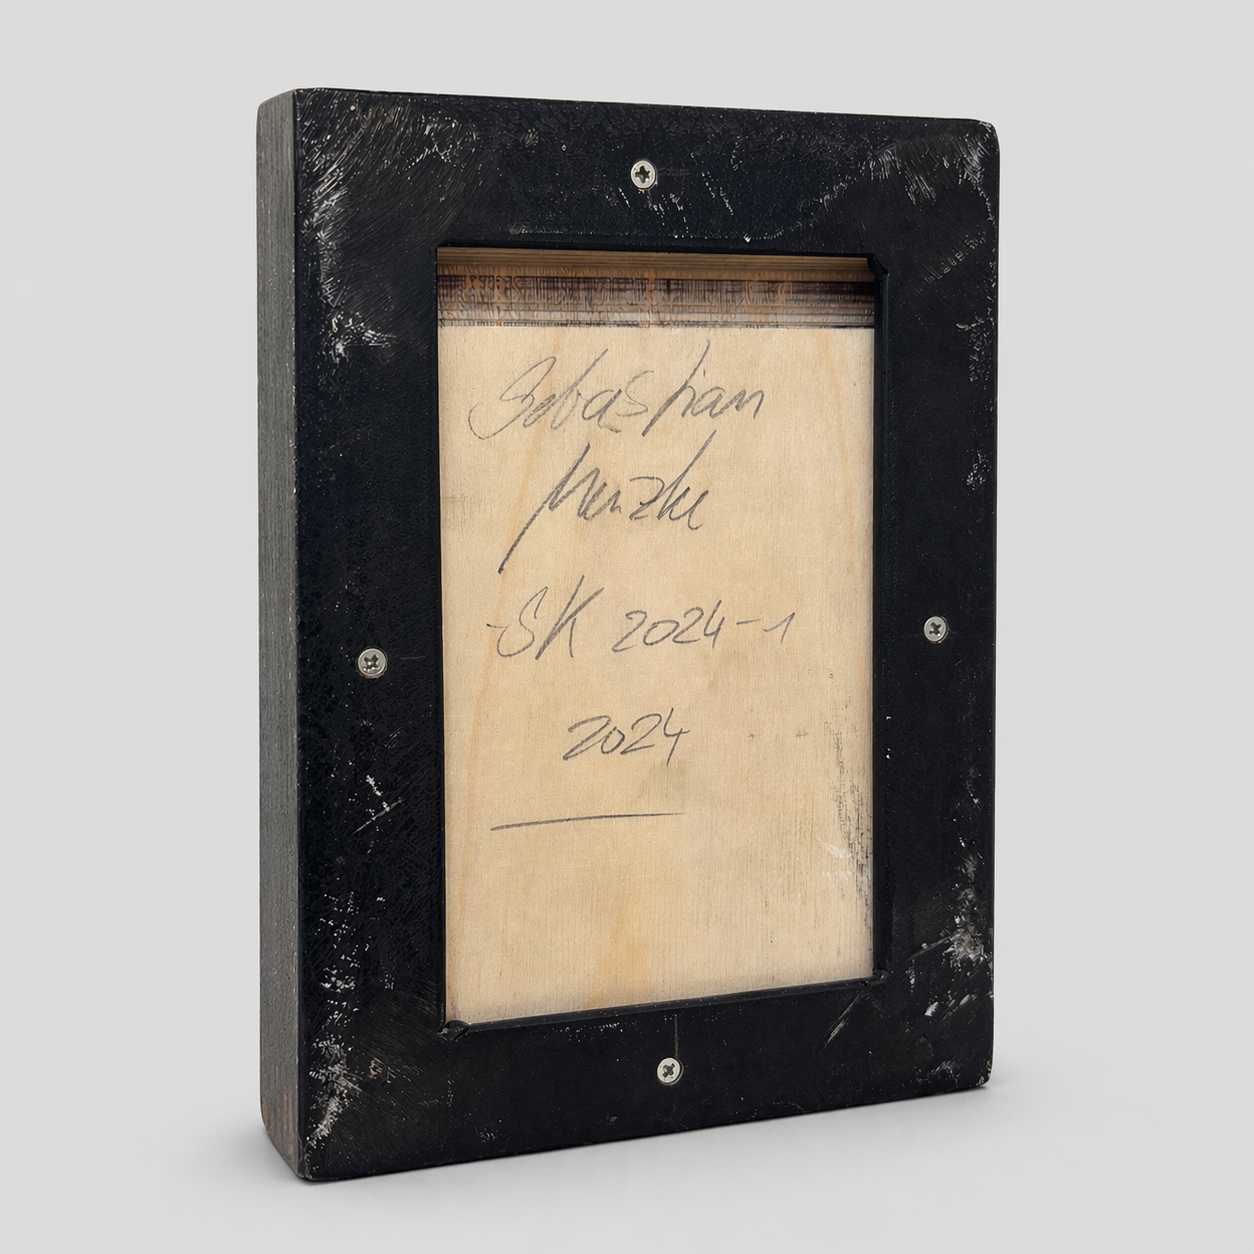 Sebastian
Menzke
-SK 2024-1
2024